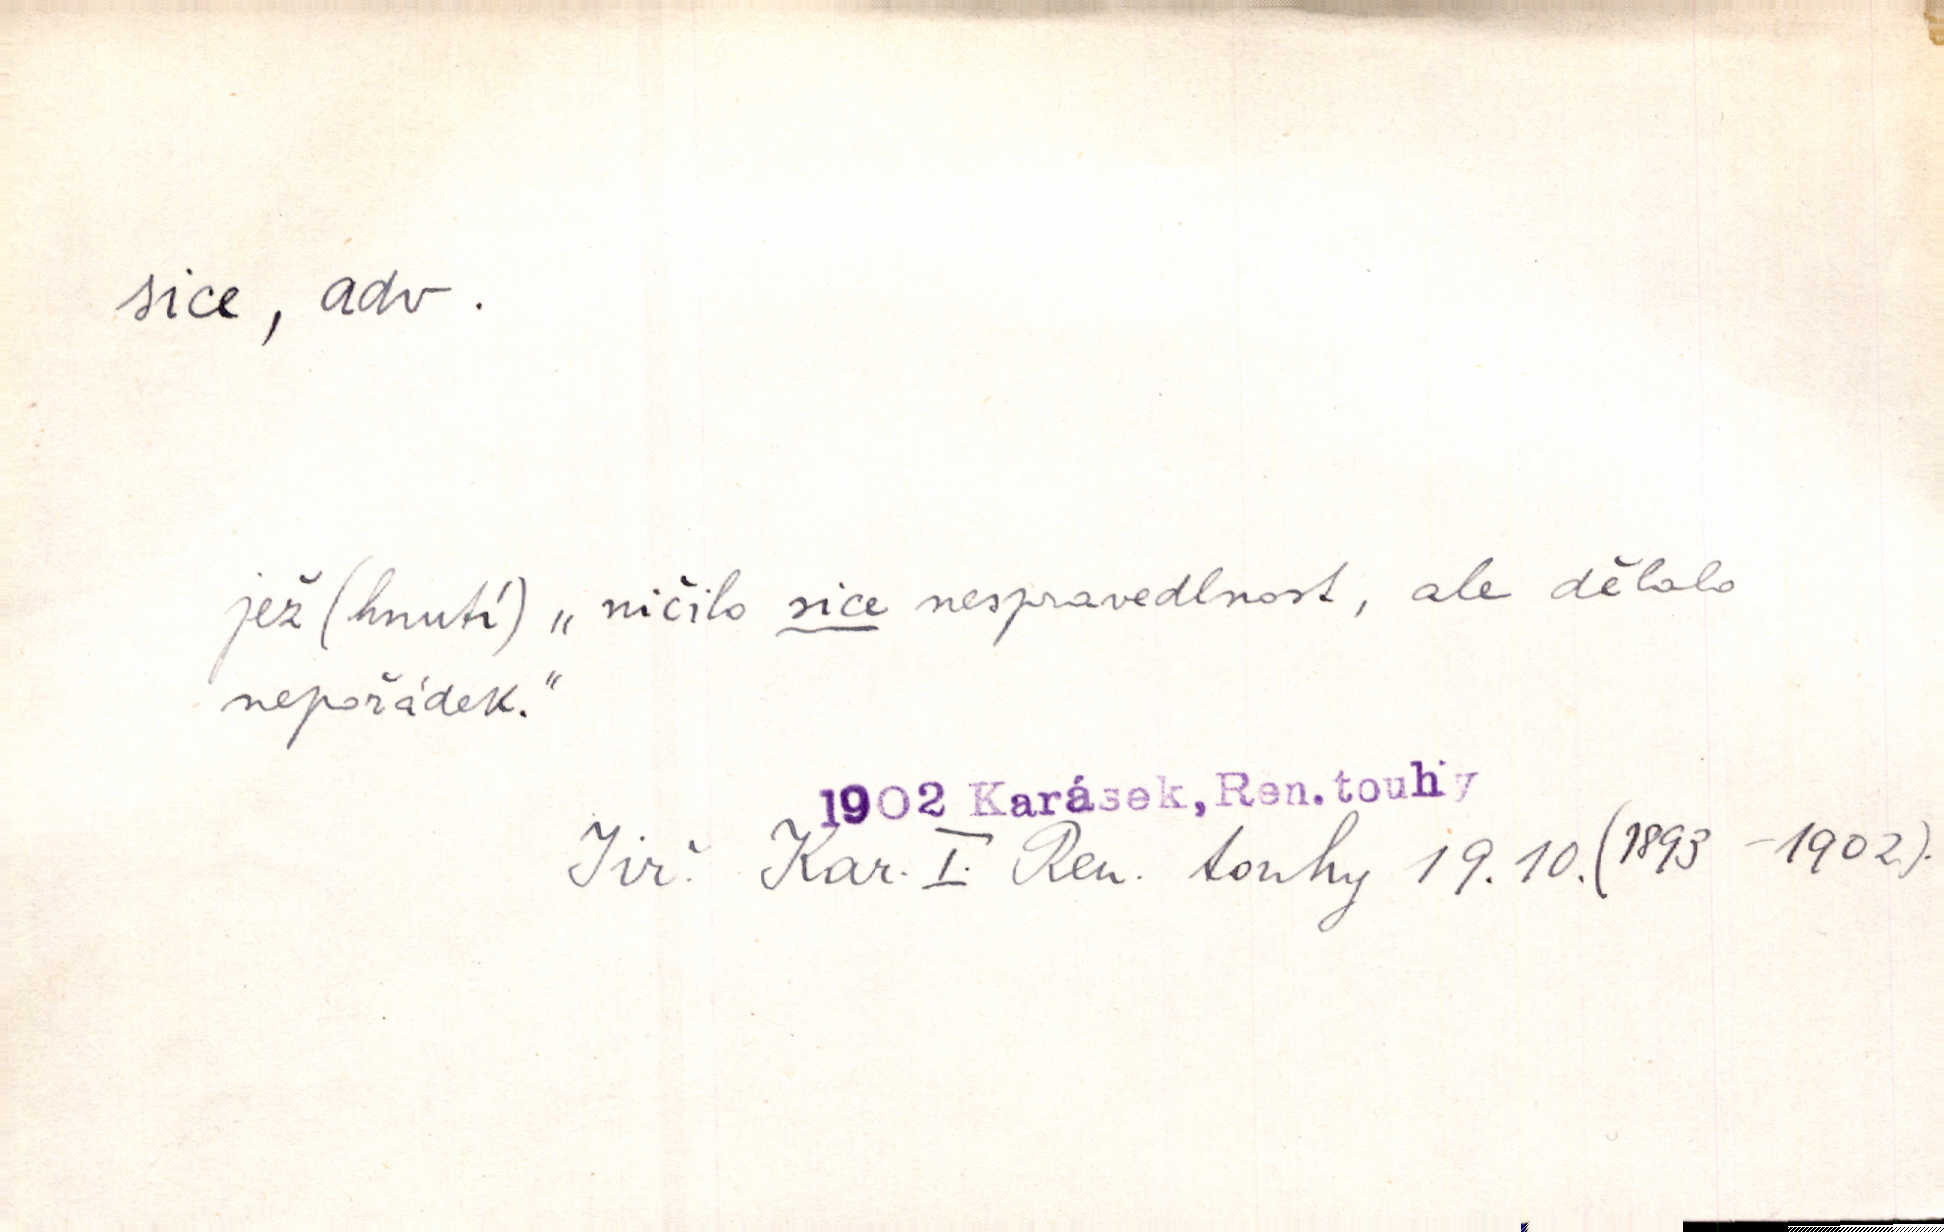 sice, adv.
jež (hnutí) „ničilo sice nespravedlnost, ale dělalo
nepořádek.“
1902 Karásek, Ren. touhy
Jiř. Kar. I. Ren. touhy 19. 10. (1893 - 1902).